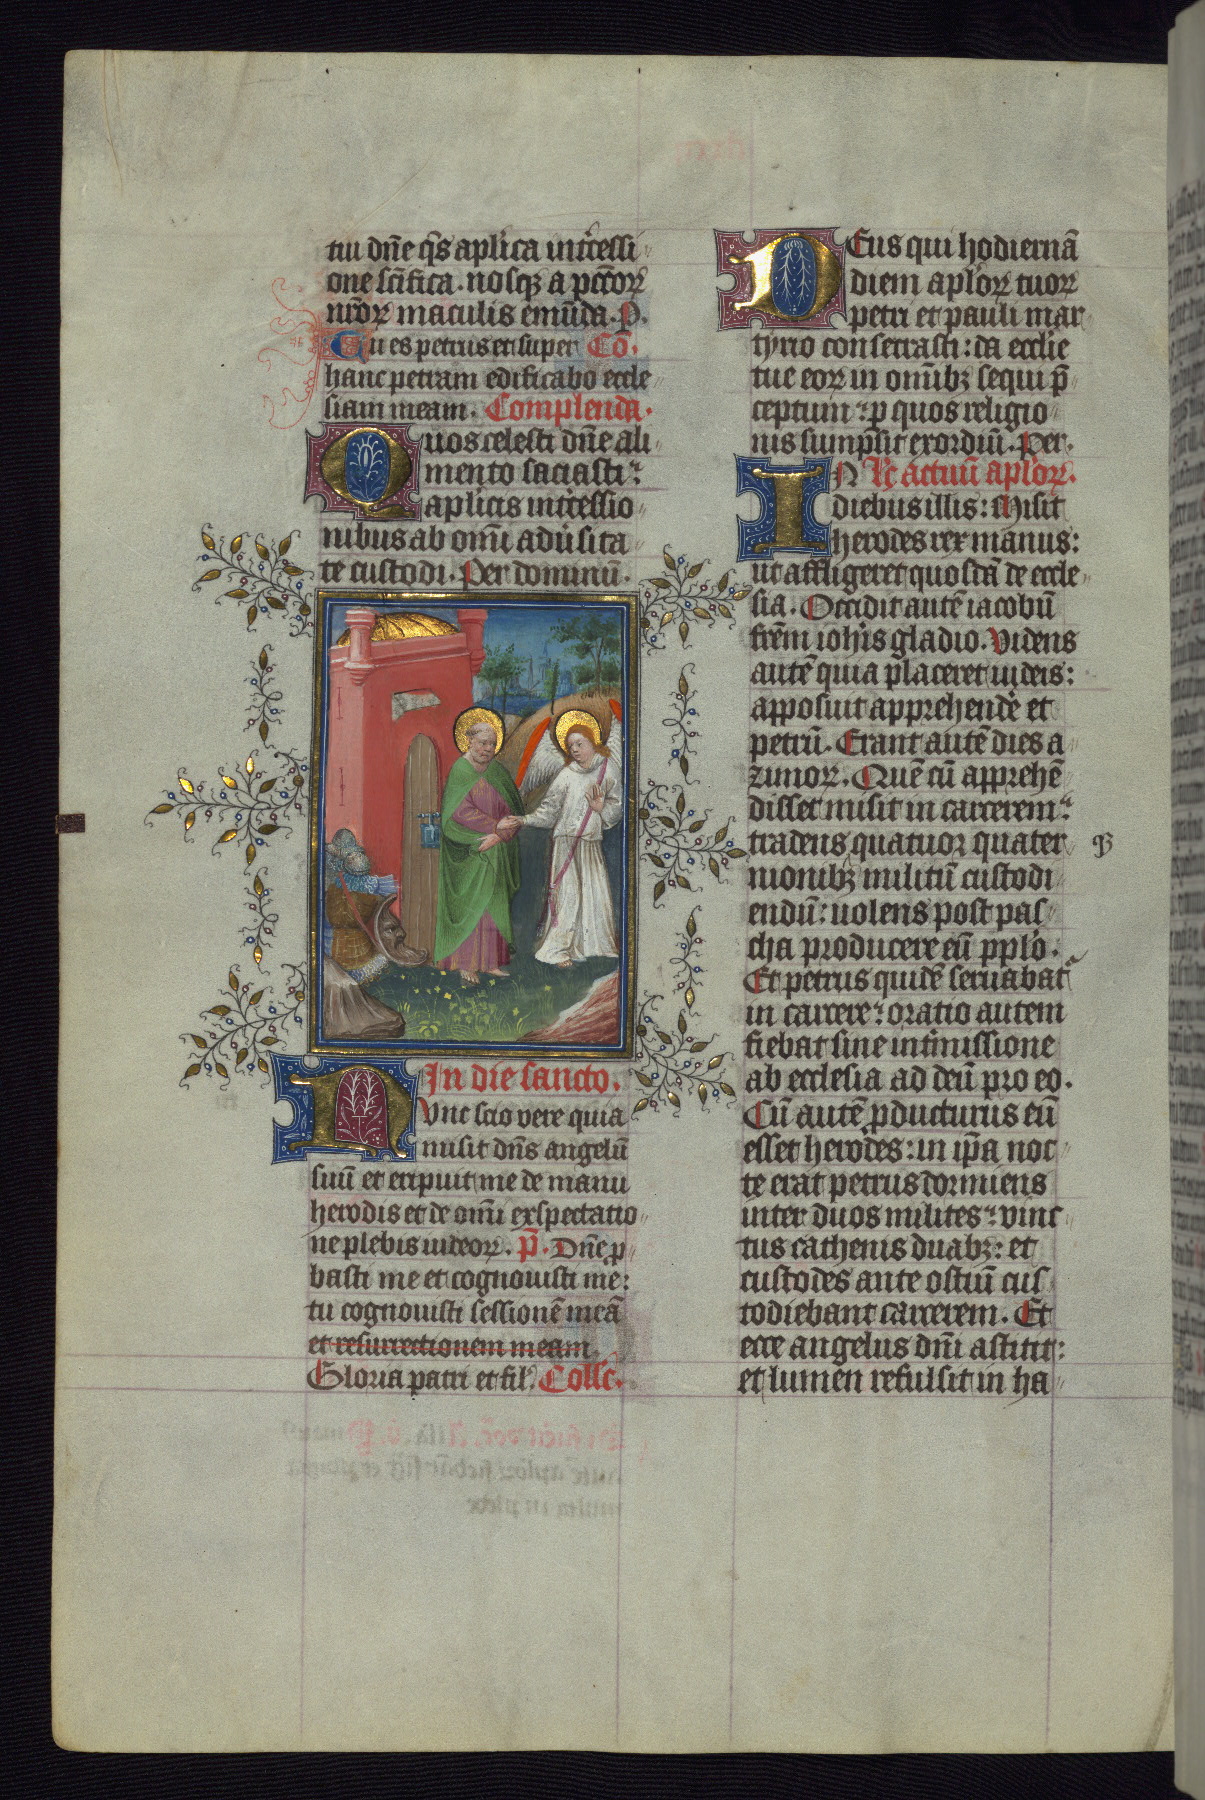 tui dn̄e q̄s aplica int̄cessi
one sc̄ifica. nosqȝ a pctōrꝝ
nr̄orꝝ maculis emūda. P.
Tu es petrus et super Cō.
hanc petram edificabo eccle
siam meam. Complenda.
Quos celesti dn̄e ali
mento saciasti:
aplicis int̄cessio
nibus ab om̄i adūsita
te custodi. Per dominū.
In die sancto.
Nunc scio vere quia
misit dn̄s angelū
suū et eripuit me de manu
herodis et de om̄i exspectatio
ne plebis iudeorꝝ. p̄. Dn̄e ꝓ
basti me et cognouisti me:
tu cognouisti sessionē meā
et resurrectionem meam.
Gloria patri et fil'. Coll'c.
Deus qui hodiernā
diem aplorꝝ tuorꝝ
petri et pauli mar
tyrio consecrasti: da ecclie
tue eorꝝ in om̄ibȝ sequi p̄
ceptum: ꝑ quos religio
nis sumpsit exordiū. Per.
IN actuū aplorꝝ.
diebus illis: Misit
herodes rex manus:
ut affligeret quosdā de eccle
sia. Occidit autē iacobū
frēm ioh̄is gladio. Videns
autē quia placeret iudeis:
apposuit apprehend̄e et
petrū. Erant autē dies a
zimorꝝ. Quē cū apprehē
disset misit in carcerem:
tradens quatuor quater
nionibȝ militū custodi
endū: uolens post pas
cha producere eū pplo.
Et petrus quidē seruabat̄
in carcere: oratio autem
fiebat sine int̄missione
ab ecclesia ad deū pro eo.
Cū autē ꝓducturus eū
esset herodes: in ip̄a noc
te erat petrus dormiens
inter duos milites: vinc
tus cathenis duabȝ: et
custodes ante ostiū cus
todiebant carcerem. Et
ecce angelus dn̄i astitit:
et lumen refulsit in ha